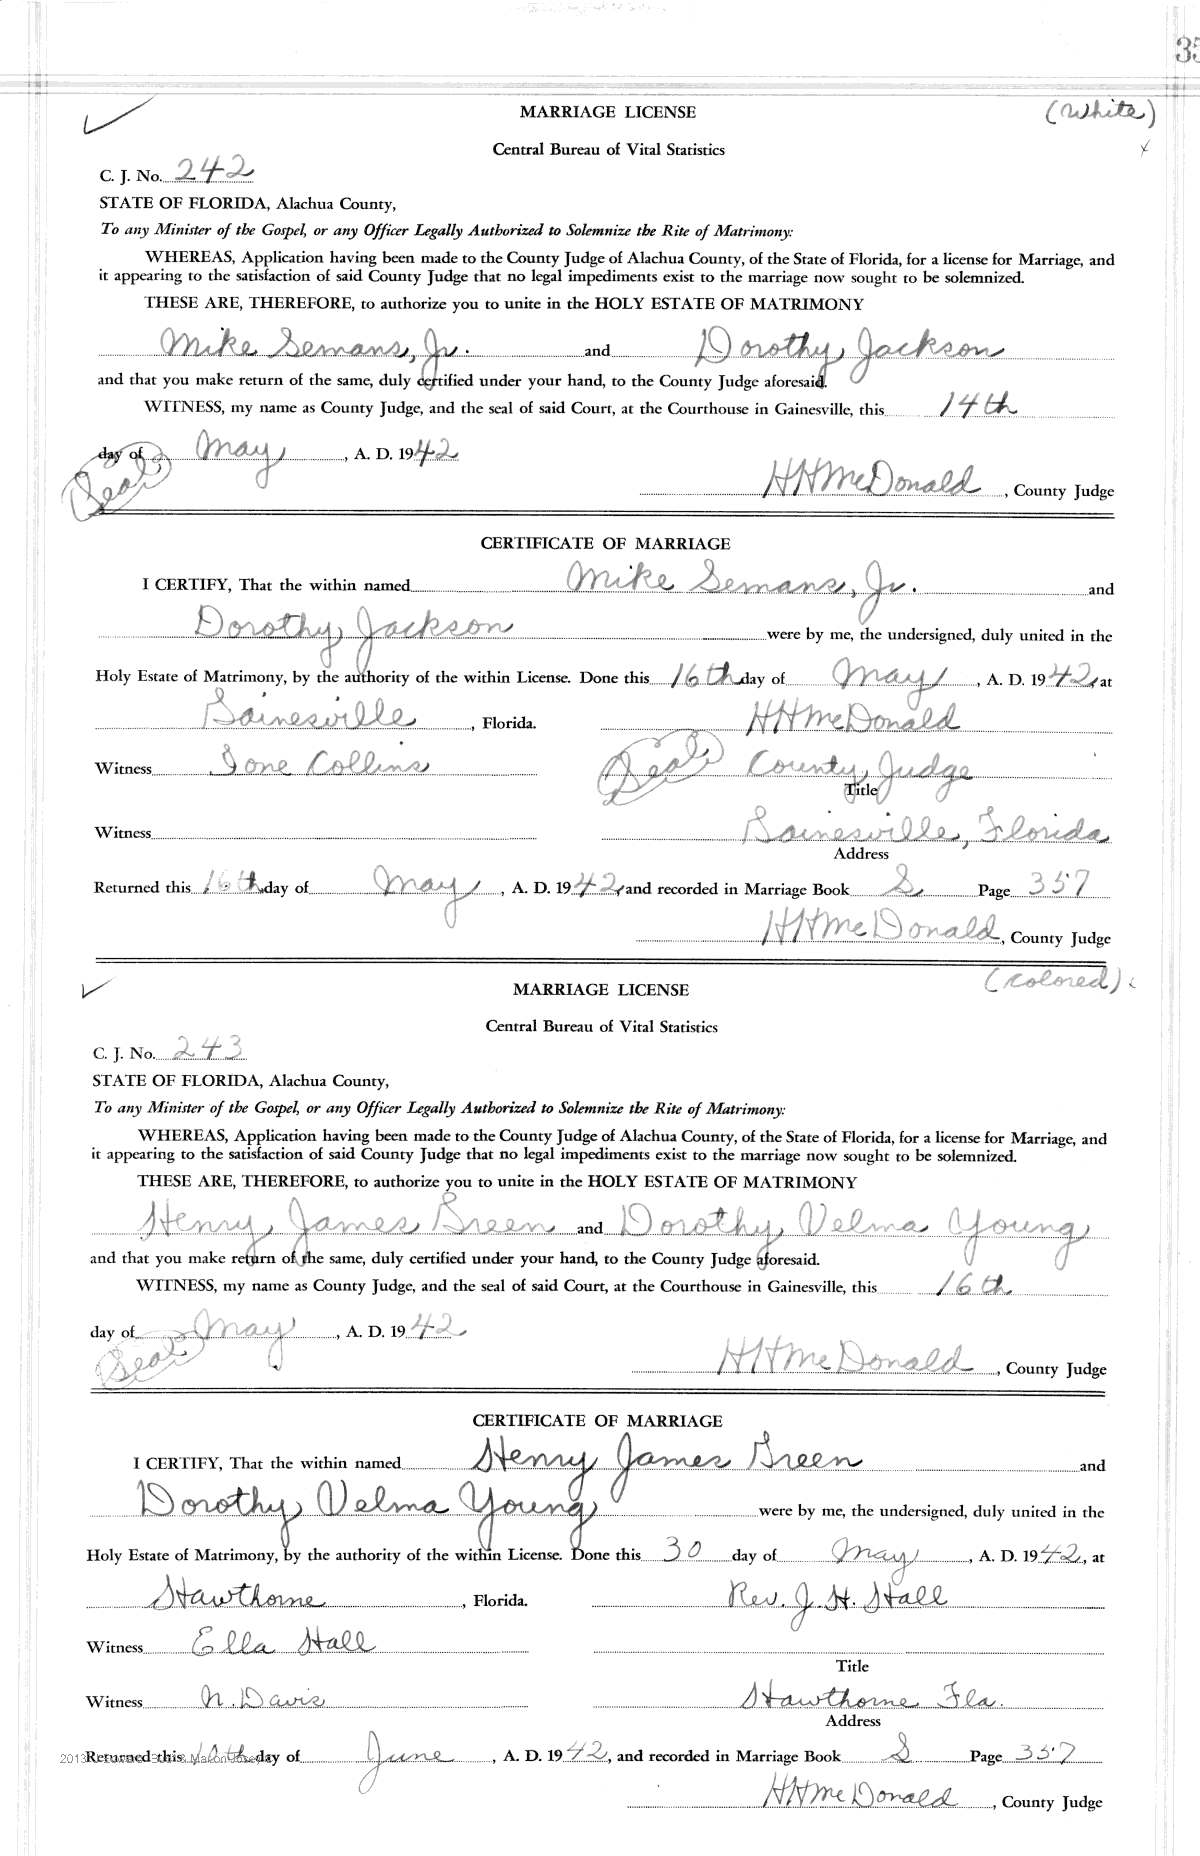 35
MARRIAGE LICENSE (White)
Central Bureau of Vital Statistics
C. J. No. 242
STATE OF FLORIDA, Alachua County,
To any Minister of the Gospel, or any Officer Legally Authorized to Solemnize the Rite of Matrimony:
WHEREAS, Application having been made to the County Judge of Alachua County, of the State of Florida, for a license for Marriage, and
it appearing to the satisfaction of said County Judge that no legal impediments exist to the marriage now sought to be solemnized.
THESE ARE, THEREFORE, to authorize you to unite in the HOLY ESTATE OF MATRIMONY
Mike Semans, Jr. and Dorothy Jackson
and that you make return of the same, duly certified under your hand, to the County Judge aforesaid.
WITNESS, my name as County Judge, and the seal of said Court, at the Courthouse in Gainesville, this 14th
day of May, A. D. 1942
(Seal) HHMcDonald, County Judge
CERTIFICATE OF MARRIAGE
I CERTIFY, That the within named Mike Semans, Jr. and
Dorothy Jackson were by me, the undersigned, duly united in the
Holy Estate of Matrimony, by the authority of the within License. Done this 16th day of May, A. D. 1942, at
Gainesville, Florida. HHMcDonald
Witness Ione Collins (Seal) County Judge
Title
Witness Gainesville, Florida
Address
Returned this 16th day of May, A. D. 1942, and recorded in Marriage Book S Page 357
HHMcDonald, County Judge
(Colored)
MARRIAGE LICENSE
Central Bureau of Vital Statistics
C. J. No. 243
STATE OF FLORIDA, Alachua County,
To any Minister of the Gospel, or any Officer Legally Authorized to Solemnize the Rite of Matrimony:
WHEREAS, Application having been made to the County Judge of Alachua County, of the State of Florida, for a license for Marriage, and
it appearing to the satisfaction of said County Judge that no legal impediments exist to the marriage now sought to be solemnized.
THESE ARE, THEREFORE, to authorize you to unite in the HOLY ESTATE OF MATRIMONY
Henry James Green and Dorothy Velma Young
and that you make return of the same, duly certified under your hand, to the County Judge aforesaid.
WITNESS, my name as County Judge, and the seal of said Court, at the Courthouse in Gainesville, this 16th
day of May, A. D. 1942
(Seal) HHMcDonald, County Judge
CERTIFICATE OF MARRIAGE
I CERTIFY, That the within named Henry James Green and
Dorothy Velma Young were by me, the undersigned, duly united in the
Holy Estate of Matrimony, by the authority of the within License. Done this 30 day of May, A. D. 1942, at
Hawthorne, Florida. Rev. J. H. Hall
Witness Ella Hall
Title
Witness N. Davis Hawthorne Fla.
Address
Returned this day of June, A. D. 1942, and recorded in Marriage Book S Page 357
HHMcDonald, County Judge